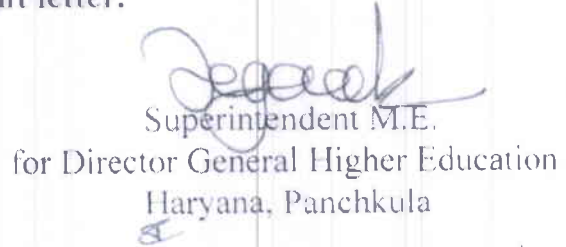 letter.
Superintendent M.E.
for Director General Higher Education
Haryana, Panchkula